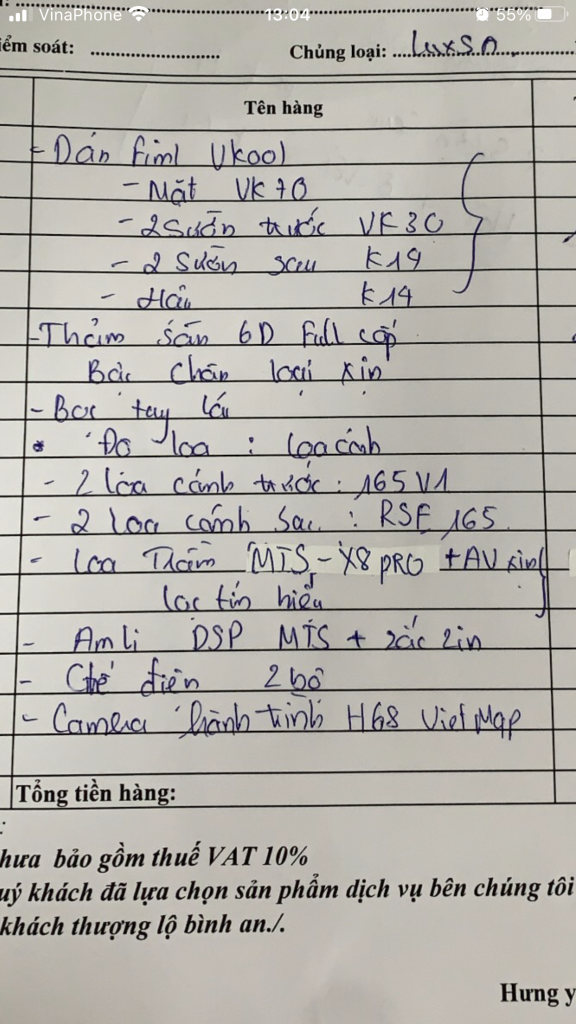 VinaPhone 13:04 55%
iểm soát: ........................ Chủng loại: ....LuxSA.............
Tên hàng
- Dán fiml Vkool
- Mặt VK70
- 2 Sườn trước VK30
- 2 Sườn sau K19
- Hậu K14
- Thảm sàn 6D Full cốp
Bậc chân loại xịn
- Bọc tay lái
* Độ loa : loa cánh
- 2 loa cánh trước : 165 V1
- 2 loa cánh sau : RSE 165
- Loa Trầm MTS - X8 PRO + AV xịn
lọc tín hiệu
- Amli DSP MTS + zắc zin
- Ghế điện 2 bộ
- Camera hành trình H68 VietMap
Tổng tiền hàng:
:
hưa bảo gồm thuế VAT 10%
uý khách đã lựa chọn sản phẩm dịch vụ bên chúng tôi
khách thượng lộ bình an./.
Hưng y